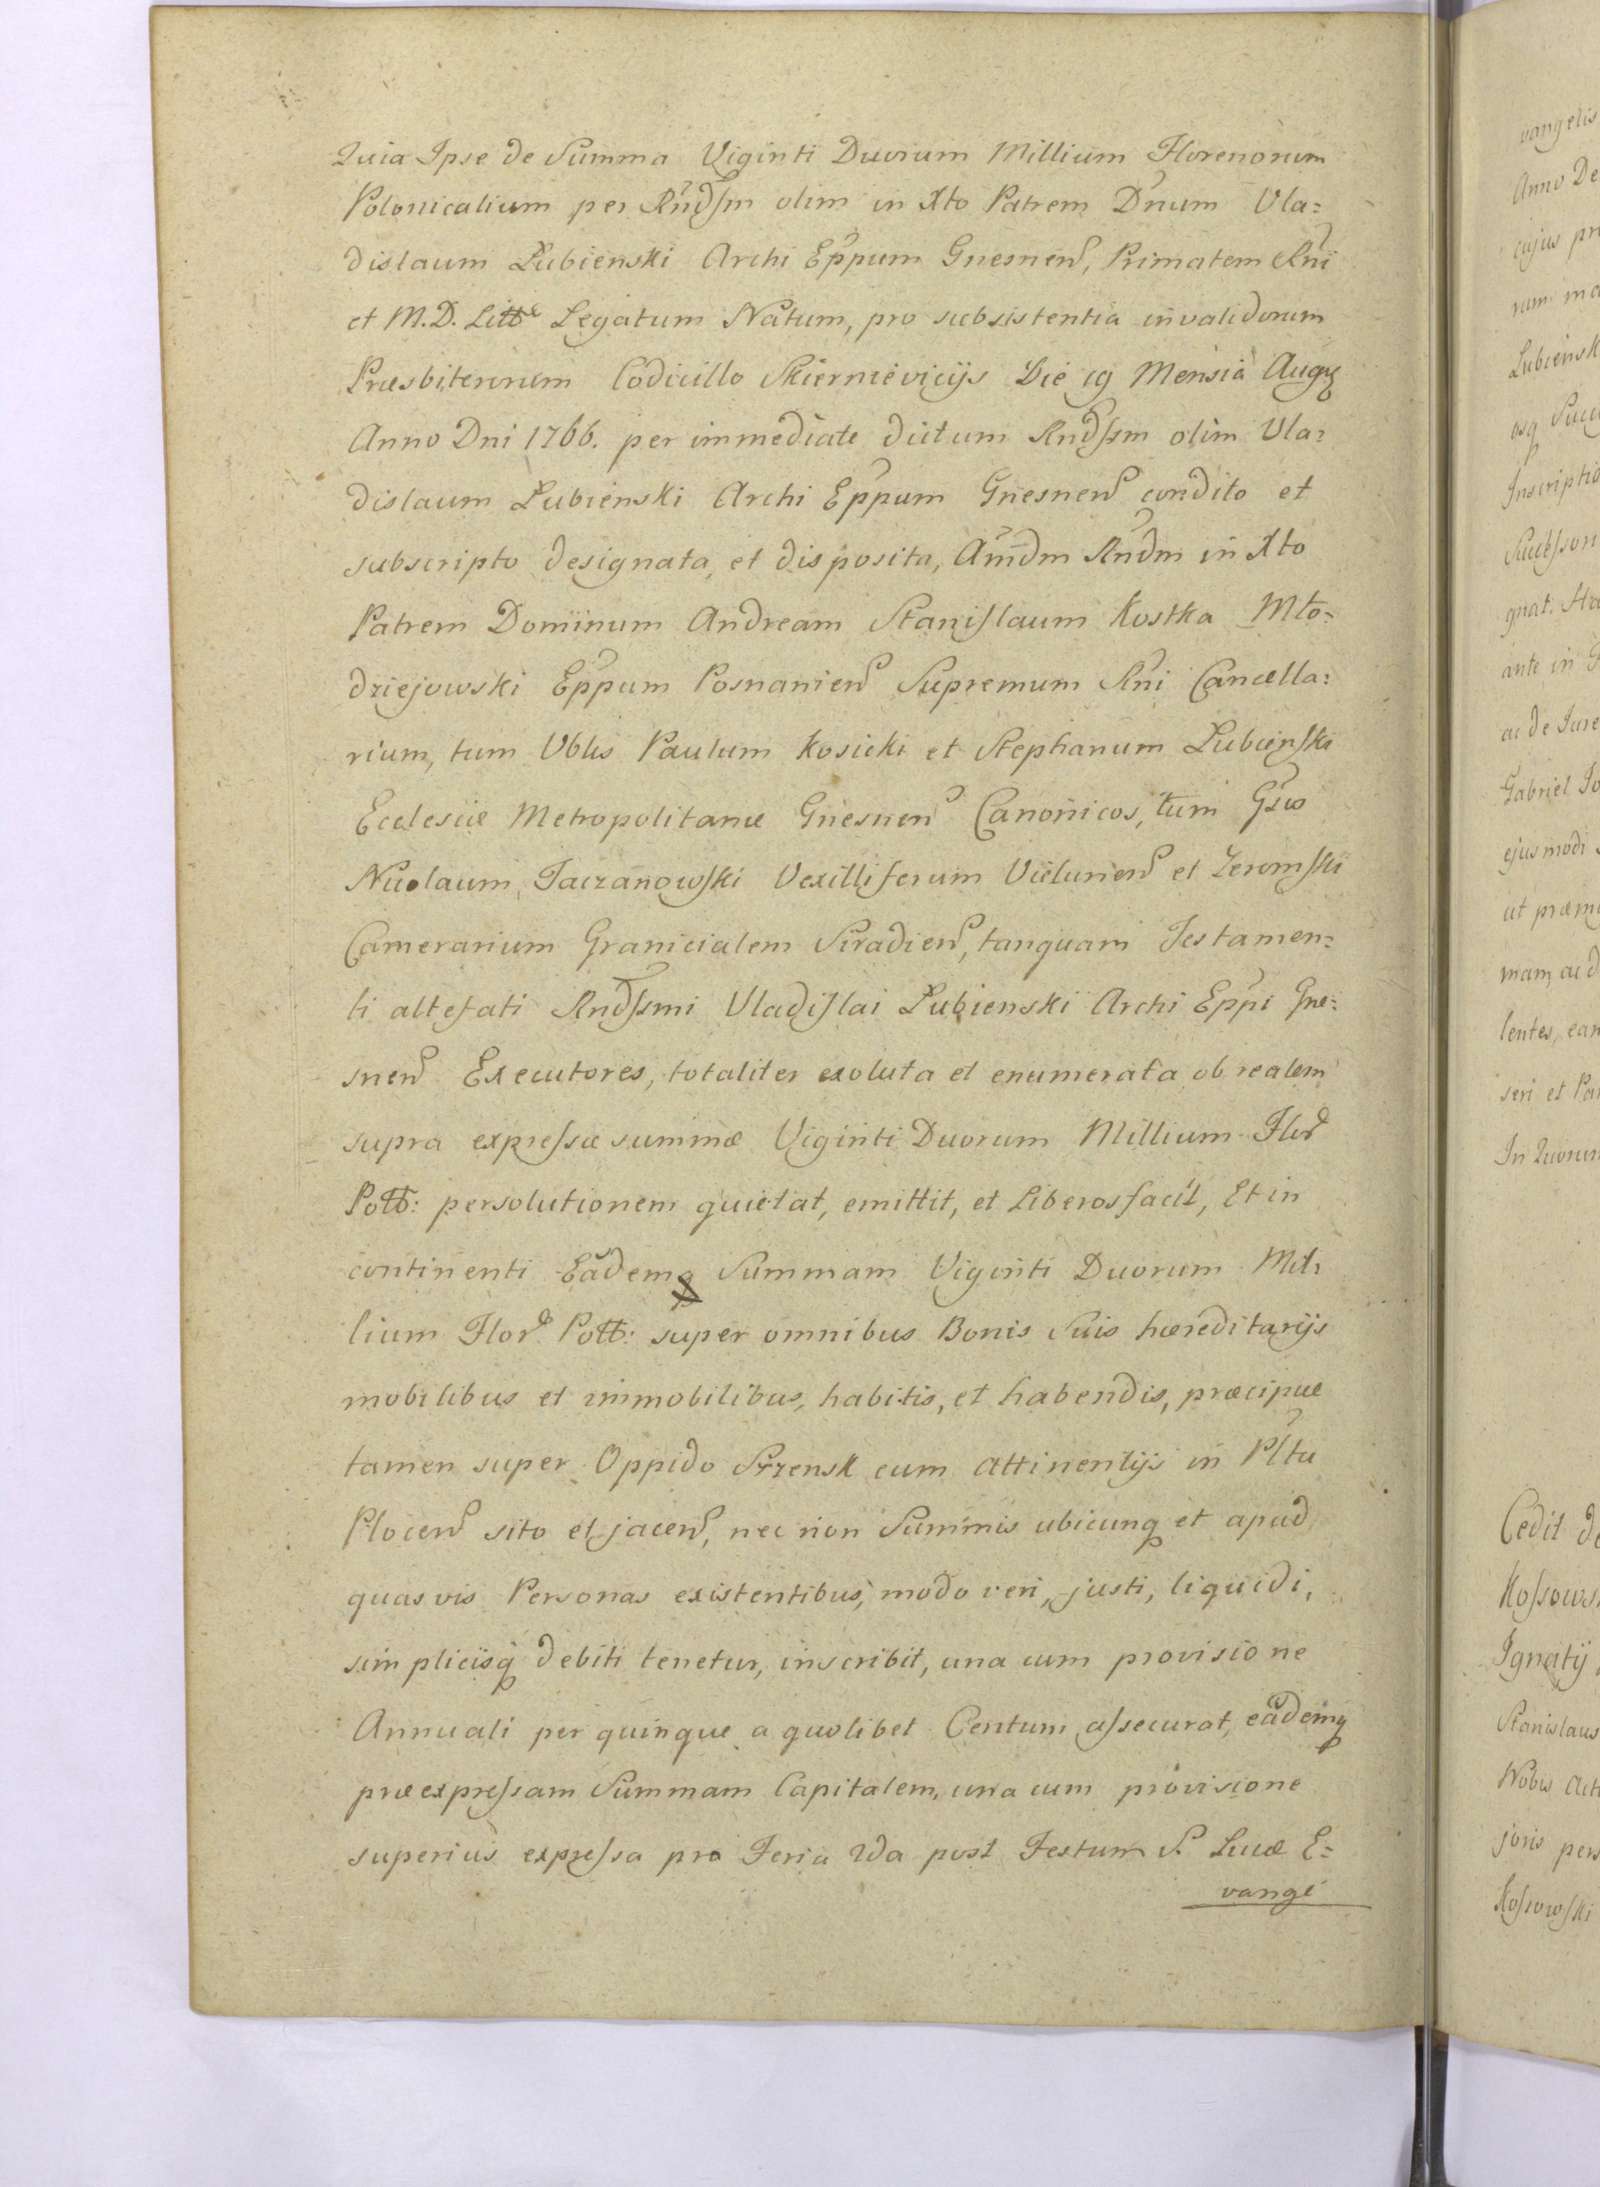 Quia Ipse de Summa Viginti Duorum Millium Florenorum
Polonicalium per Rndssm olim in Xto Patrem Dnum Vla:
dislaum Łubienski Archi Eppum Gnesnen, Primatem Rni
et M.D. Litt Legatum Natum, pro subsistentia invalidorum
Præsbiterorum Codicillo Skiernieviciis Die 19 Mensia Augg
Anno Dni 1766. per immediate dictum Rndssm olim Vla:
dislaum Łubienski Archi Eppum Gnesnen condito et
subscripto designata, et disposita, Amdm Rndm in Xto
Patrem Dominum Andream Stanislaum Kostka Mło:
dziejowski Eppum Posnanien Supremum Rni Cancella:
rium, tum Vbles Paulum Kosicki et Stephanum Łubienski
Ecclesiæ Metropolitanæ Gnesnen Canonicos, tum Gsos
Nicolaum Taczanowski Vexilliferum Vielunen et Zeromski
Camerarium Granicialem Siradien, tanquam Testamen:
ti altefati Rndssmi Vladislai Łubienski Archi Eppi Gne:
snen Executores, totaliter exoluta et enumerata ob realem
supra expressæ summæ Viginti Duorum Millium Flor
Poll: persolutionem quietat, emittit, et Liberos facit, Et in
continenti Eademq Summam Viginti Duorum Mil:
lium Flor Poll: super omnibus Bonis Suis hæreditarijs
mobilibus et immobilibus, habitis, et habendis, præcipue
tamen super Oppido Szrensk cum attinentijs in Pltu
Plocen sito et jacen, nec non Summis ubicunq et apud
quasvis Personas existentibus, modo veri, justi, liquidi,
simplicisq debiti tenetur, inscribit, una cum provisione
Annuali per quinque a quolibet Centum assecurat, eademq
præexpressam Summam Capitalem, una cum provisione
superius expressa pro Feria 2da post Festum S. Lucæ E:
vange
vangelis
Anno De
cujus pr
rum ma
Lubiensk
osq Succ
Inscriptio
Successor
gnat. Ha
ante in G
ac de Jure
Gabriel Jo
ejusmodi
ut præm
mam, ac d
lentes, ean
seri et Pa
In Quorum
Cedit de
Kossows
Ignatij
Stanislaus
Nobis Act
joris pers
Kossowski